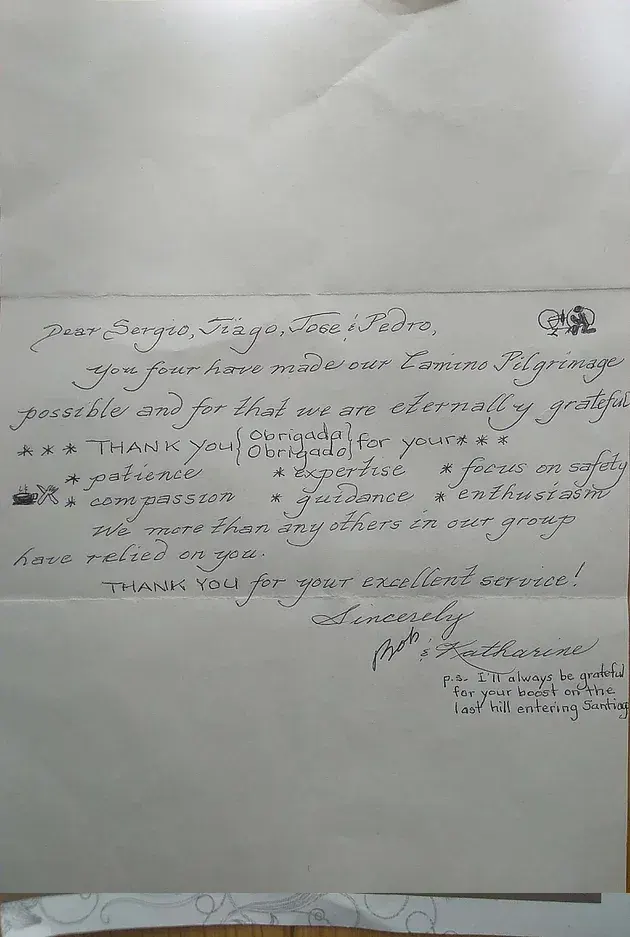 Dear Sergio, Tiago, Jose & Pedro,
You four have made our Camino Pilgrimage
possible and for that we are eternally grateful
* * * THANK YOU { Obrigada
Obrigado } for your * * *
* patience * expertise * focus on safety
* compassion * guidance * enthusiasm
We more than any others in our group
have relied on you.
THANK YOU for your excellent service!
Sincerely
Bob & Katharine
p.s. I'll always be grateful
for your boost on the
last hill entering Santiag